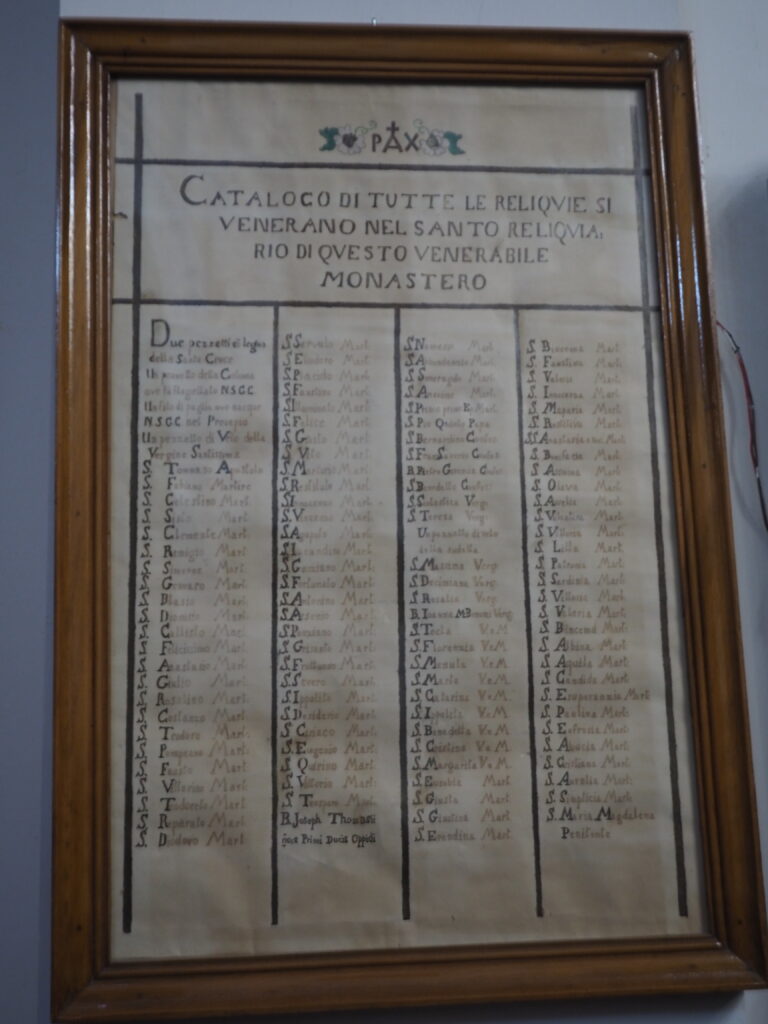 PAX
CATALOCO DI TUTTE LE RELIQVIE SI
VENERANO NEL SANTO RELIQVIA,
RIO DI QVESTO VENERABILE
MONASTERO
Due pezzetti di legno
della Santa Croce
Un pezzetto della Colonna
ove fu flagellato N.S.G.C.
Un filo di paglia ove nacque
N.S.G.C. nel Presepio
Un pezzetto di Velo della
Vergine Santissima
S. Tommaso Apostolo
S. Fabiano Martire
S. Celestino Mart.
S. Sisto Mart.
S. Clemente Mart.
S. Remigio Mart.
S. Simeone Mart.
S. Genaro Mart.
S. Blasio Mart.
S. Dionisio Mart.
S. Callisto Mart.
S. Felicissimo Mart.
S. Anastasio Mart.
S. Giulio Mart.
S. Mart.
S. Costanzo Mart.
S. Teodoro Mart.
S. Pompeano Mart.
S. Fausto Mart.
S. Vittorino Mart.
S. Teodoreto Mart.
S. Reparato Mart.
S. Diodoro Mart.
S. Servulo Mart.
S. Eliodoro Mart.
S. Placido Mart.
S. Faustino Mart.
S. Illuminato Mart.
S. Felice Mart.
S. Giusto Mart.
S. Vito Mart.
S. Mart.
S. Restituto Mart.
S. Innocenzo Mart.
S. Vincenzo Mart.
S. Agapito Mart.
S. Iucundino Mart.
S. Mart.
S. Fortunato Mart.
S. Antonino Mart.
S. Arsenio Mart.
S. Ponziano Mart.
S. Mart.
S. Fruttuoso Mart.
S. Severo Mart.
S. Ippolito Mart.
S. Desiderio Mart.
S. Ciriaco Mart.
S. Eugenio Mart.
S. Quirino Mart.
S. Vittorio Mart.
S. Mart.
B. Joseph Thomasii
Primi Ducis Oppidi
S. Nemesio Mart.
S. Mart.
S. Smeragdo Mart.
S. Mart.
S. Mart.
S. Pio Quinto Papa
S. Bernardino Confes.
S. Fran. Saverio Confes.
B. Pietro Confes.
S. Benedetto Confess.
S. Scolastica Verg.
S. Teresa Verg.
Un pezzetto di velo
della sudetta
S. Massima Verg.
S. Decimiana Verg.
S. Rosalia Verg.
B. Ioanna M. Verg.
S. Tecla V. e M.
S. Fiorenzia V. e M.
S. Menula V. e M.
S. Marta V. e M.
S. Catarina V. e M.
S. Ippolita V. e M.
S. Benedetta V. e M.
S. Cristina V. e M.
S. Margarita V. e M.
S. Eusebia Mart.
S. Giusta Mart.
S. Giustina Mart.
S. Erendina Mart.
S. Mart.
S. Faustina Mart.
S. Valeria Mart.
S. Innocenza Mart.
S. Mart.
S. Basilisia Mart.
SS. Anastasia Mart.
S. Bonifacia Mart.
S. Mart.
S. Oliva Mart.
S. Aurelia Mart.
S. Mart.
S. Vittoria Mart.
S. Lilla Mart.
S. Patronia Mart.
S. Sardonia Mart.
S. Vittoria Mart.
S. Valeria Mart.
S. Mart.
S. Albina Mart.
S. Aquila Mart.
S. Candida Mart.
S. Esuperanzia Mart.
S. Paulina Mart.
S. Eufrasia Mart.
S. Mart.
S. Cristiana Mart.
S. Aurelia Mart.
S. Simplicia Mart.
S. Maria Magdalena
Penitente